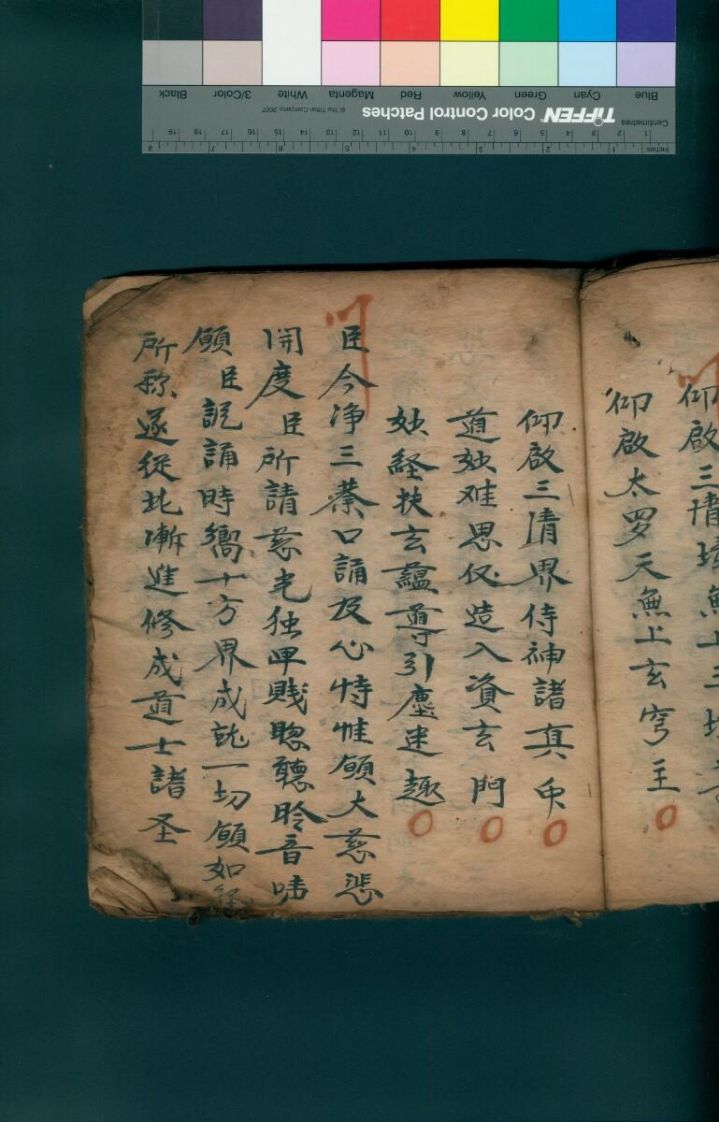 Blue Cyan Green Yellow Red Magenta White 3/Color Black
TIFFEN Color Control Patches © The Tiffen Company, 2007
Centimetres
Inches
仰啟三清境無上三境
仰啟太罗天無上玄穹主
仰啟三清界侍神諸真
道妙难思仪造入資玄門
妙経扶玄蘊導引塵迷趣
臣今净三業口誦及心恃惟願大慈悲
開度臣所請慈光独甲賤聡聽昤音
願臣説誦時嚮十方界成就一切願如
所称遂從此漸進修成道士諸圣